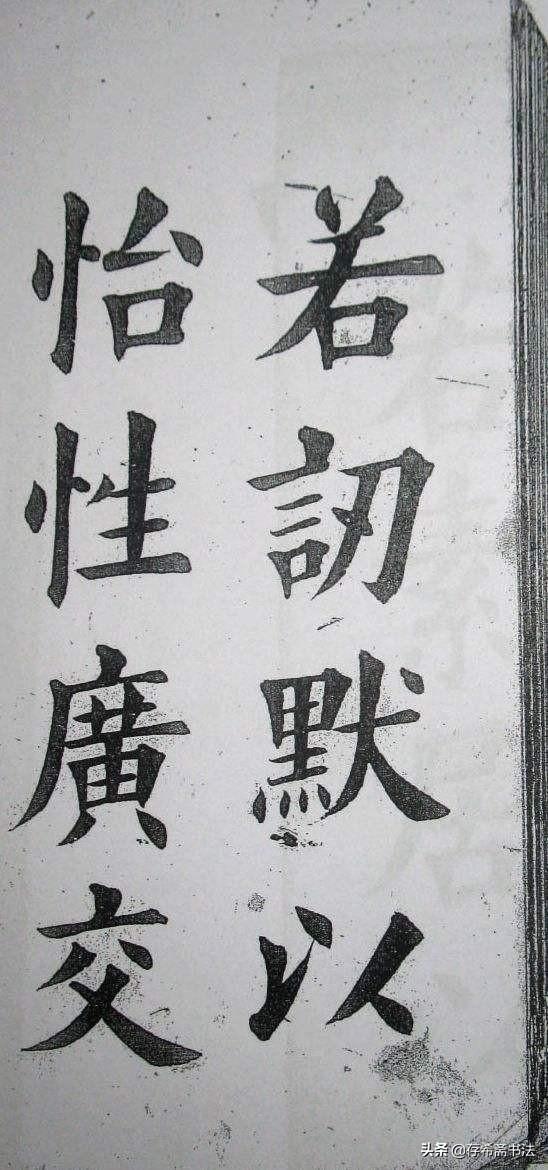 若訒默以
怡性廣交
头条@存希斋书法